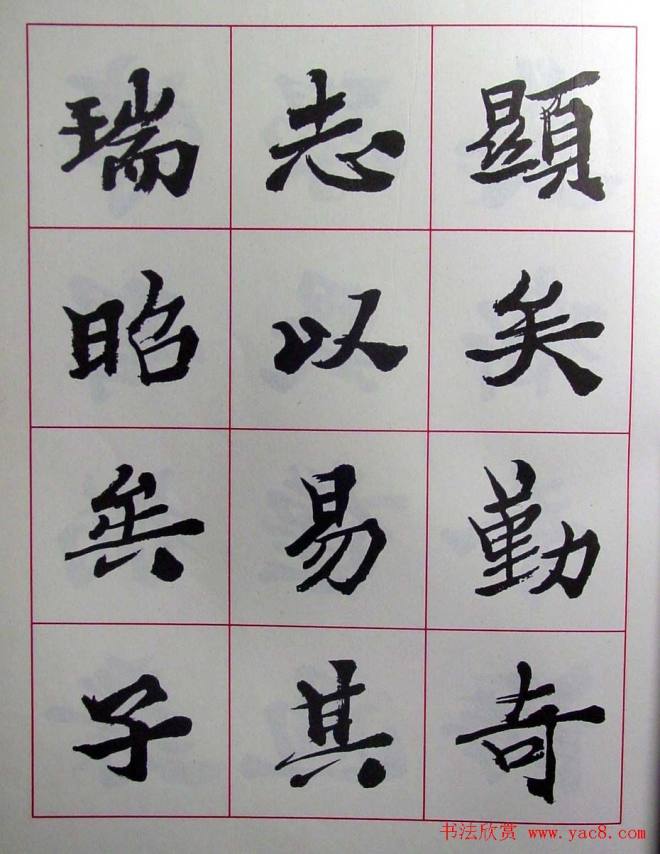 顕矣勤奇
志以易其
瑞昭兵子
书法欣赏 www.yac8.com